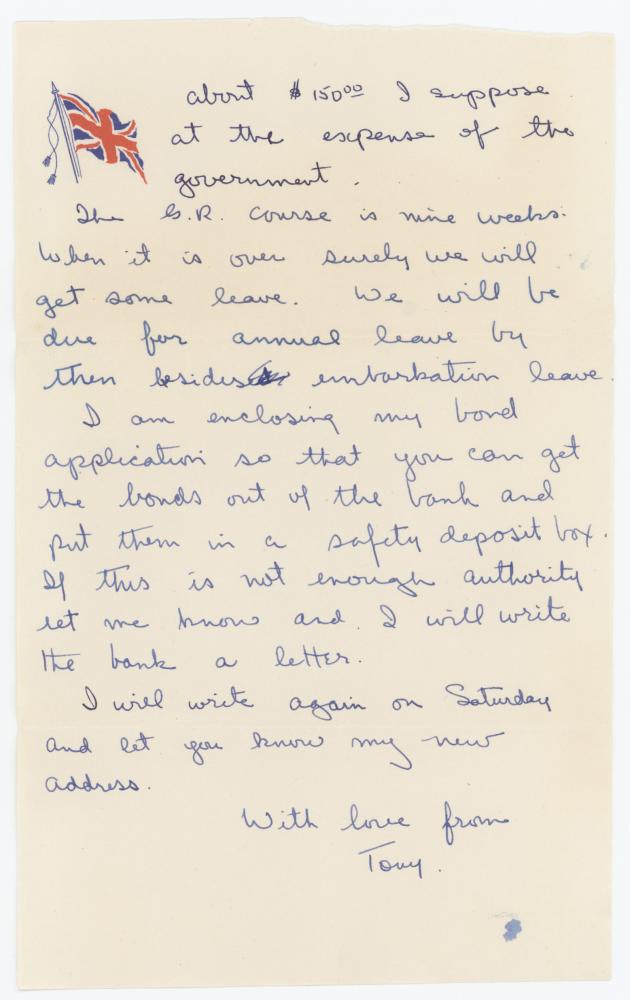 about $150.00 I suppose
at the expense of the
government.
The G.R. course is nine weeks.
When it is over surely we will
get some leave. We will be
due for annual leave by
then besides embarkation leave.
I am enclosing my bond
application so that you can get
the bonds out of the bank and
put them in a safety deposit box.
If this is not enough authority
let me know and I will write
the bank a letter.
I will write again on Saturday
and let you know my new
address.
With love from
Tony.